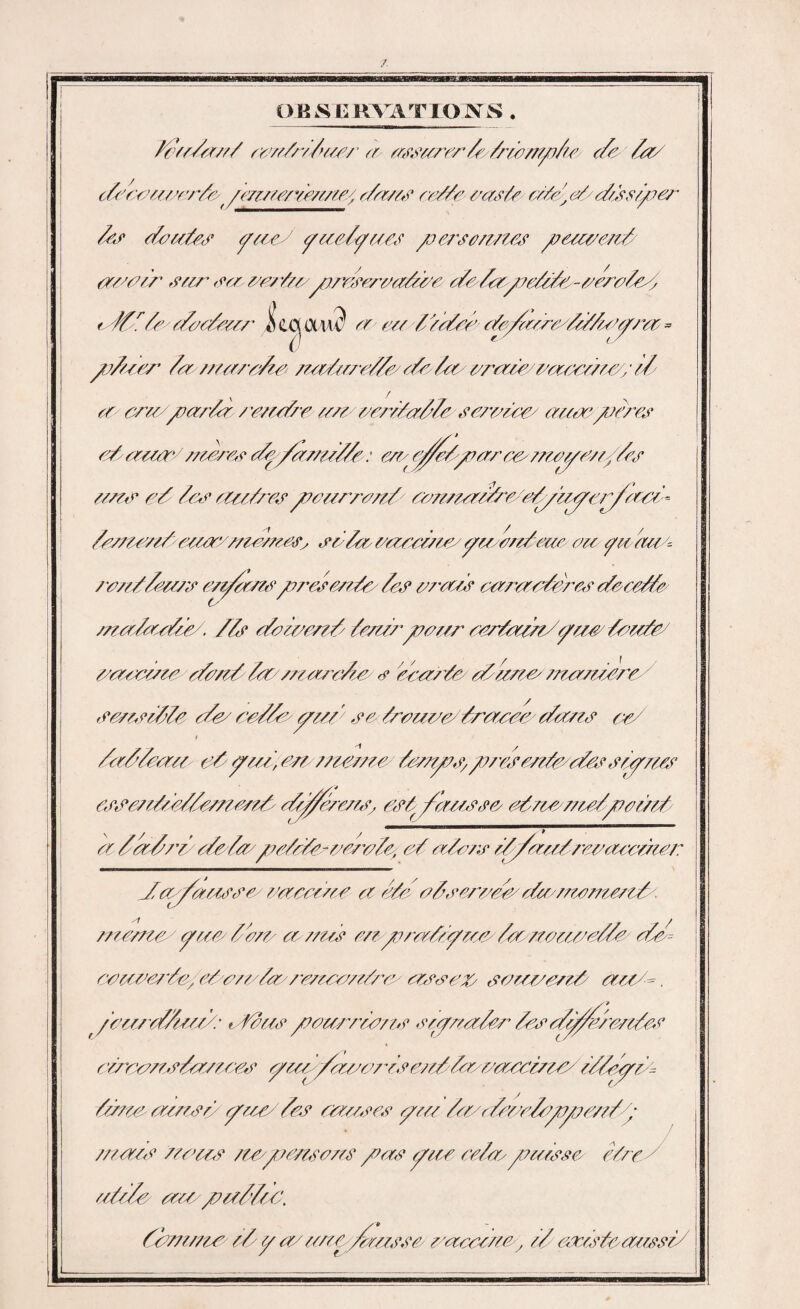 7.
OBSERVATIONS.
Voulant contribuer à assurer le triomphe de la
découverte jennerienne, dans cette vaste cité, et dissiper
les doutes que quelques personnes peuvent
avoir sur sa vertu préservative de la petite-vérole,
Mr. le docteur Legaud a eu l'idée de faire lithogra=
phier la marche naturelle de la vraie vaccine; il
a cru par là rendre un véritable service aux pères
et aux mères de famille: en effet par ce moyen, les
uns et les autres pourront connaître et juger faci=
lement eux mêmes, si la vaccine qu'ont eue ou qu'au=
ront leurs enfans présente les vrais caractères de cette
maladie. Ils doivent tenir pour certain que toute
vaccine dont la marche s'écarte d'une manière
sensible de celle qui se trouve tracée dans ce
tableau et qui, en même temps, présente des signes
essentiellement différens, est fausse et ne met point
à l'abri de la petite-vérole, et alors il faut revacciner.
La fausse vaccine a été observée du moment.
même que l'on a mis en pratique la nouvelle dé=
couverte, et on la rencontre assez souvent au=.
jourd'hui: Nous pourrions signaler les différentes
circonstances qui favorisent la vaccine illégi=
time ainsi que les causes qui la développent;
mais nous ne pensons pas que cela puisse être
utile au public.
Comme il y a une fausse vaccine, il existe aussi